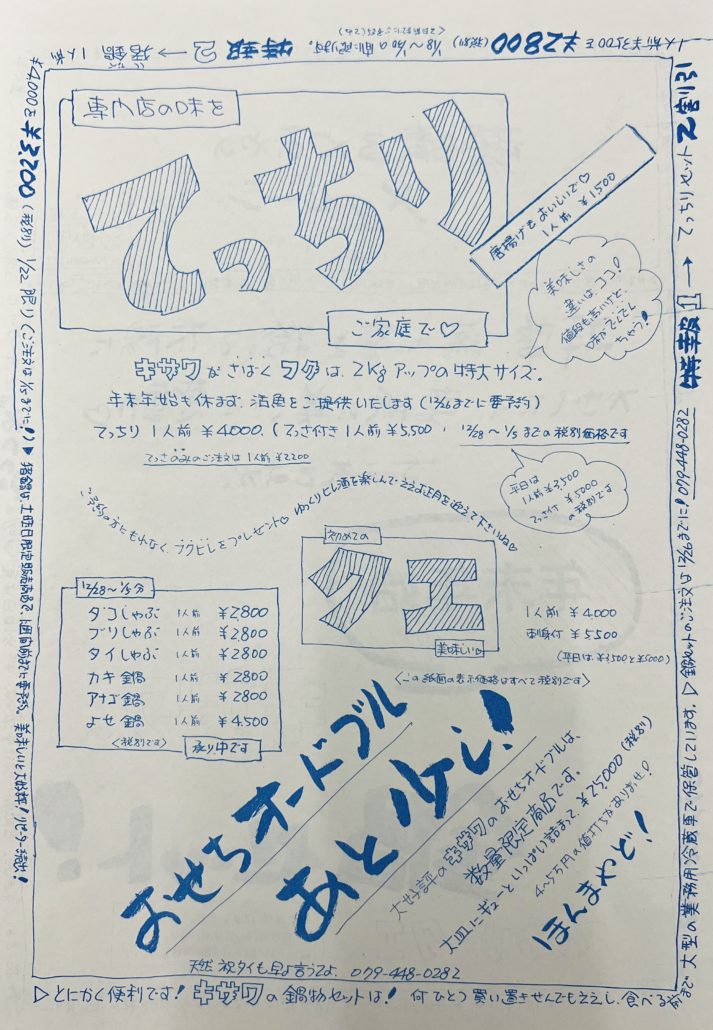 専門店の味を
てっちり
ご家庭で♡
唐揚げもおいしいで♡
1人前 ¥1500
美味しさの
違いはココ!
値段も高いけど、
味がぜんぜん
ちゃう!
キサワがさばくフグは、2Kgアップの特大サイズ。
年末年始も休まず、活魚をご提供いたします(12/26までに要予約)
てっちり 1人前 ¥4000.(てっさ付き1人前¥5,500、12/28～1/5までの税別価格です
てっさのみのご注文は1人前¥2200
平日は
1人前¥3,500
てっさ付 ¥5000
の税別です
ご予約の方にもれなく、フクビレをプレゼント♡ ゆっくりヒレ酒を楽しんで、ええ正月を迎えて下さいね♡
初めての
クエ
美味しい♡
1人前 ¥4000
お刺身付 ¥5500
(平日は¥3500と¥5000)
<この紙面の表示価格はすべて税別です>
12/28～1/5分
タコしゃぶ 1人前 ¥2800
ブリしゃぶ 1人前 ¥2800
タイしゃぶ 1人前 ¥2800
カキ鍋 1人前 ¥2800
アナゴ鍋 1人前 ¥2800
よせ鍋 1人前 ¥4,500
<税別です>
承り中です
おせちオードブル
あと少し!
大好評のキサワのおせちオードブルは、
数量限定商品です。
大皿にギューといっぱい詰まって、¥25,000(税別)
4～5万円の値打ちがありまっせ!
ほんまやど!
天然 祝タイも早よ言うてよ、079-448-0282
▷とにかく便利です!キサワの鍋物セットは!何ひとつ買い置きせんでもええし、食べる分まで
大型の業務用冷蔵車で保管しています。▷鍋セットのご注文は12/26までに!079-448-0282
特報1→てっちりセット2割引
1人前¥3500を¥2800(税別)1/8～1/20の間に限ります。
特報2→猪鍋 1人前
¥4,000を¥3,200(税別)1/22限り(ご注文は1/15までに!)▶猪鍋は、土曜日限定販売商品で、1週間前までに要予約。美味しいと大好評!リピーター続出!